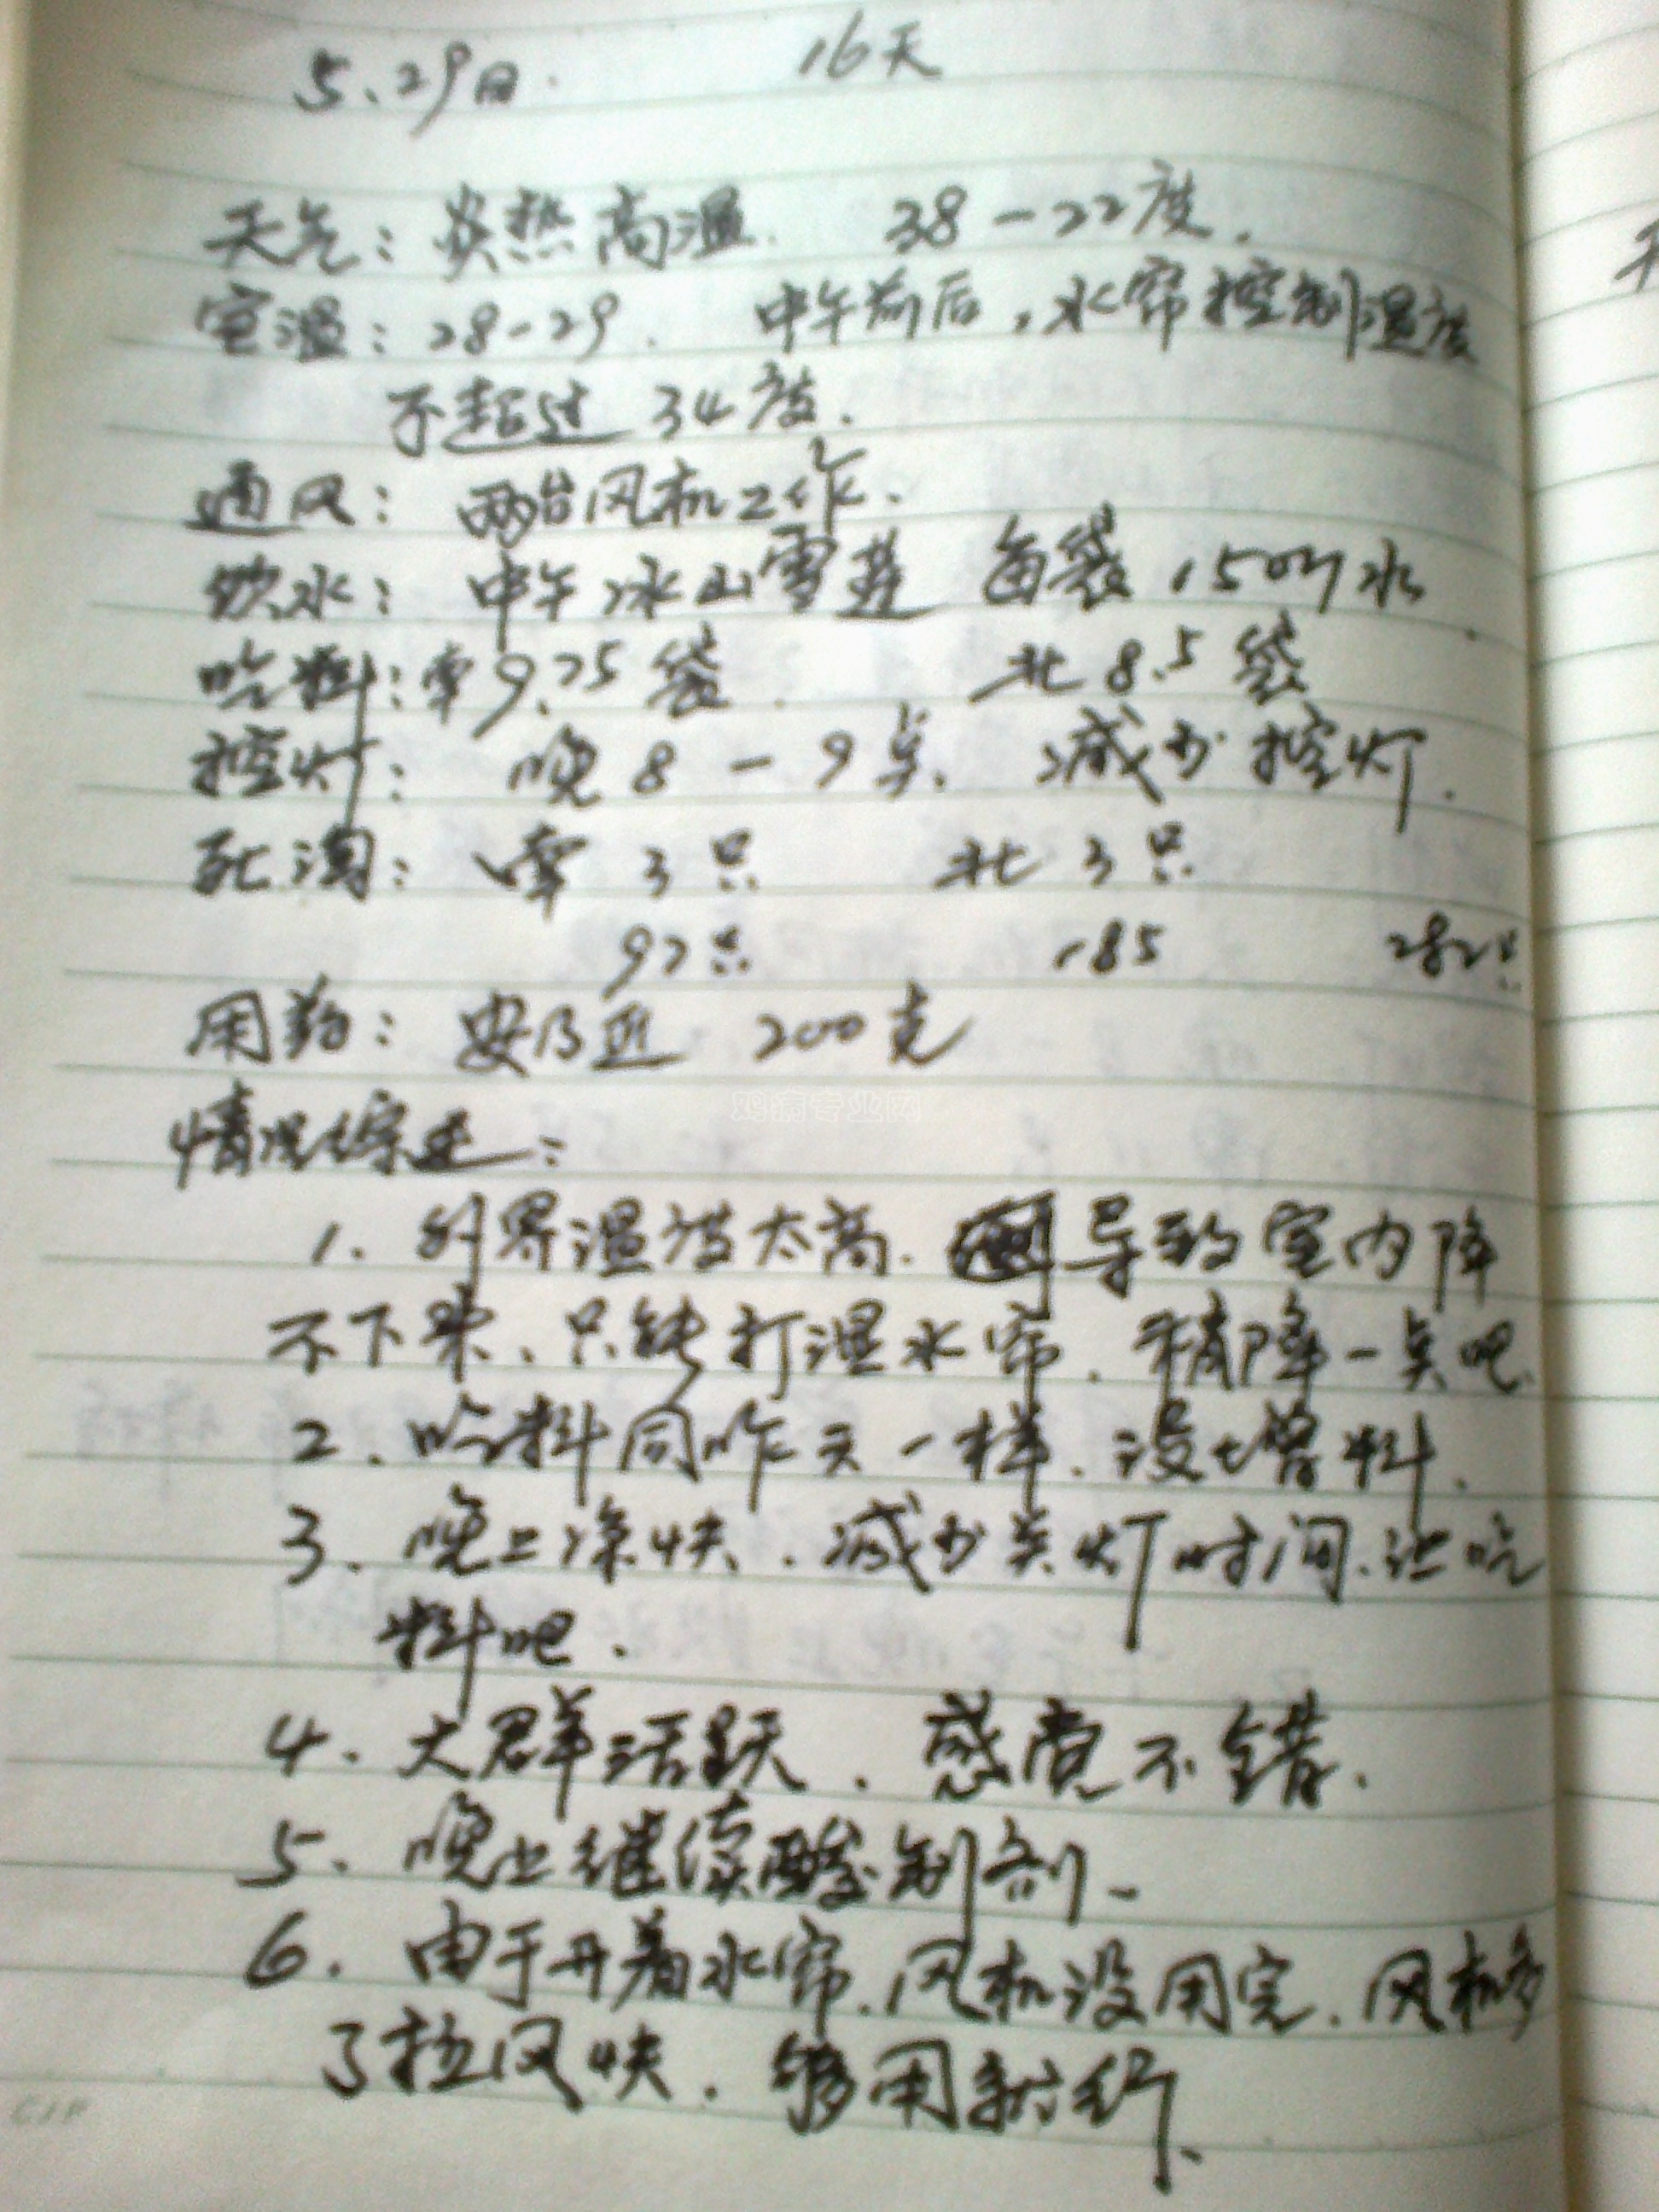 5.29日. 16天
天气:炎热高温. 38-22度.
室温:28-29. 中午前后,水帘控制温度
不超过34度.
通风:两台风机工作.
饮水:中午冰山雪莲 每袋150斤水
吃料:南9.75袋. 北8.5袋
控灯: 晚8-9点. 减少控灯.
死淘: 南3只 北3只
97只 185 282只
用药:安乃近 200克
鸡病专业网
情况综述:
1. 外界温度太高. 导致室内降
不下来、只能打湿水帘. 稍降一点吧.
2. 吃料同昨天一样. 没增料.
3. 晚上凉快. 减少关灯时间.让吃
料吧.
4. 大群活跃. 感觉不错.
5. 晚上继续酸制剂.
6. 由于开着水帘.风机没用完.风机多
了拉风快. 够用就行.